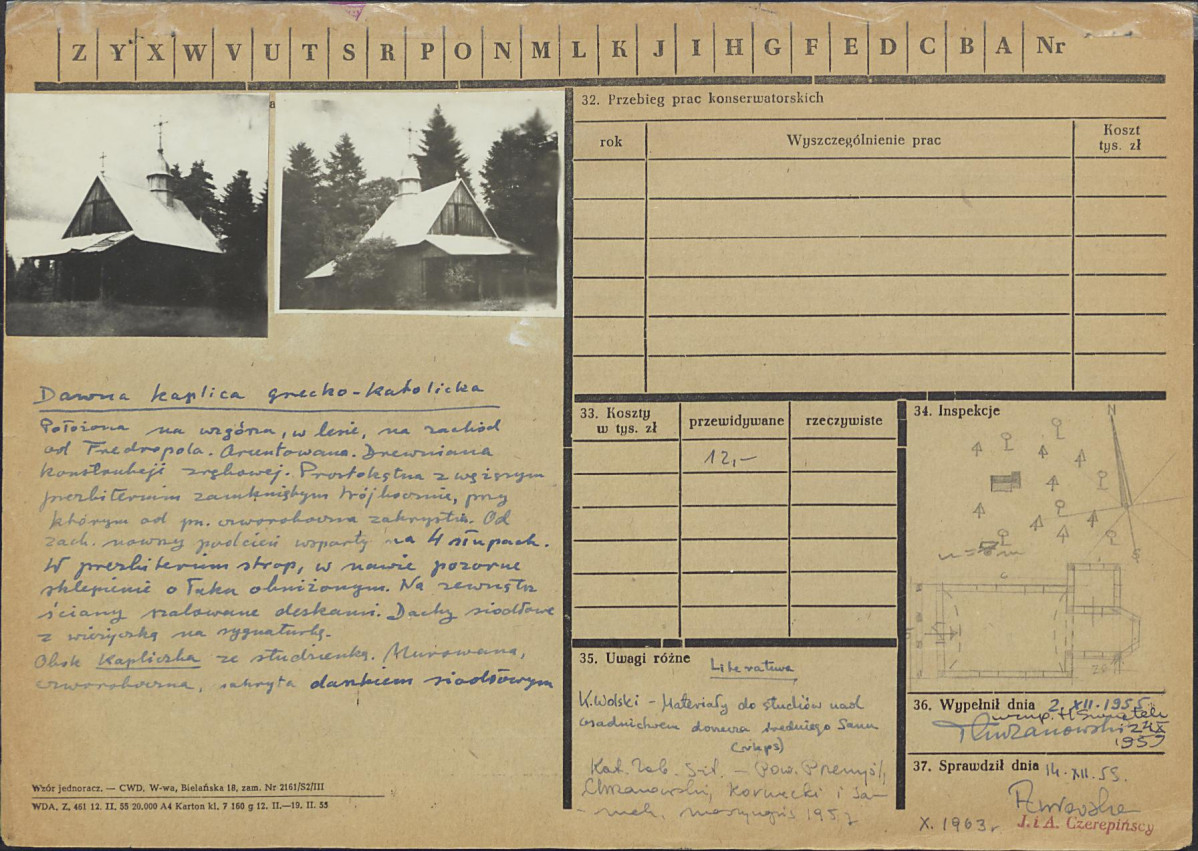 Z Y X W V U T S R P O N M L K J I H G F E D C B A Nr
8
Dawna kaplica grecko-katolicka
Położona na wzgórzu, w lesie, na zachód
od Fredropola. Orientowana. Drewniana
konstrukcji zrębowej. Prostokątna z węższym
prezbiterium zamkniętym trójbocznie, przy
którym od pn. czworoboczna zakrystia. Od
zach. nowszy podcień wsparty na 4 słupach.
W prezbiterium strop, w nawie pozorne
sklepienie o łuku obniżonym. Na zewnątrz
ściany szalowane deskami. Dachy siodłowe
z wieżyczką na sygnaturkę.
Obok Kapliczka ze studzienką. Murowana,
czworoboczna, nakryta daszkiem siodłowym
Wzór jednoracz. — CWD, W-wa, Bielańska 18, zam. Nr 2161/S2/III
WDA. Z. 461 12. II. 55 20.000 A4 Karton kl. 7 160 g 12. II.—19. II. 55
32. Przebieg prac konserwatorskich
rok Wyszczególnienie prac Koszt
tys. zł
33. Koszty
w tys. zł przewidywane rzeczywiste
12,-
34. Inspekcje
N
S
35. Uwagi różne
Literatura
K. Wolski - Materiały do studiów nad
osadnictwem dorzecza średniego Sanu
(mps)
Kat. Zab. Szt. - Pow. Przemyśl,
Chrzanowski, Kornecki i Sa-
mek, maszynopis 1957
36. Wypełnił dnia 2. XII. 1955
T Chrzanowski
1957
37. Sprawdził dnia 14. XII. 55.
X. 1963 r
J. i A. Czerepińscy